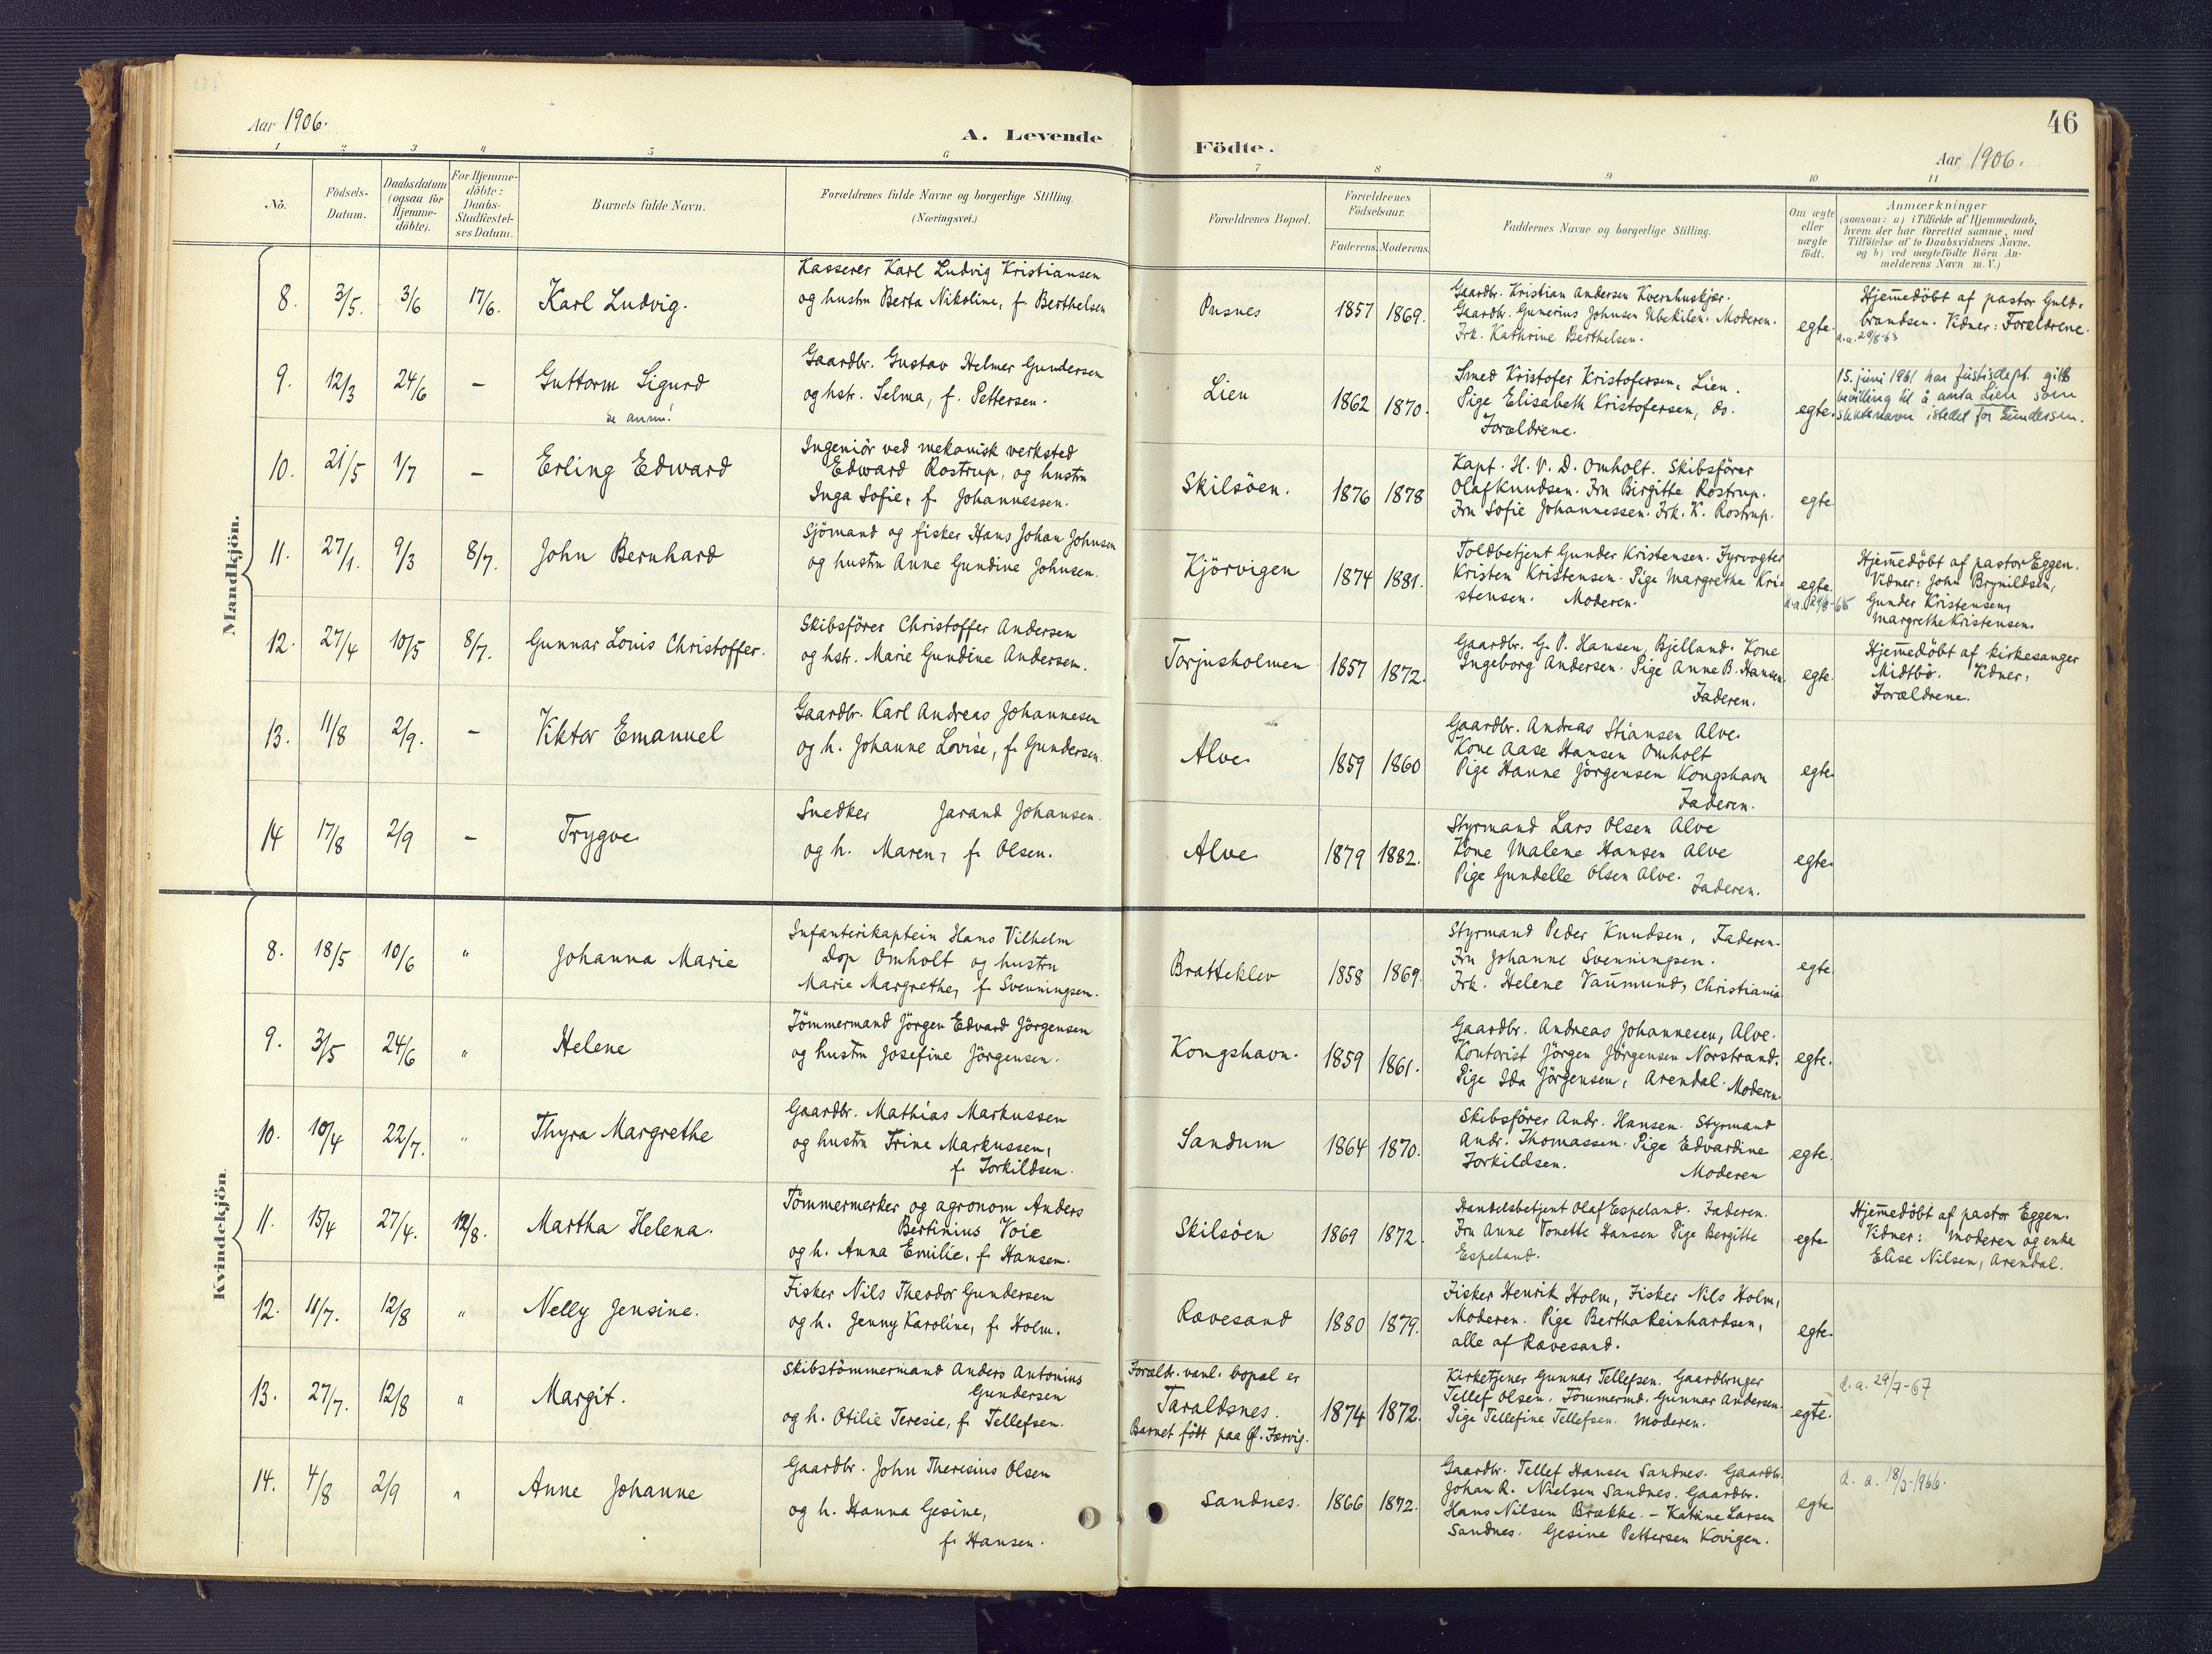 46
Aar 1906.
A. Levende Födte.
Aar 1906.
1 2 3 4 5 6 7 8 9 10 11
No. Födsels-Datum. Daabsdatum (ogsaa for Hjemmedöbte). For Hjemmedöbte: Daabs-Stadfæstelses Datum. Barnets fulde Navn. Forældrenes fulde Navne og borgerlige Stilling. (Næringsvei.) Forældrenes Bopæl. Forældrenes Födselsaar. Faderens. Moderens. Faddernes Navne og borgerlige Stilling. Om ægte eller uægte födt. Anmærkninger (saasom: a) i Tilfælde af Hjemmedaab, hvem der har forrettet samme, med Tilföielse af to Daabsvidners Navne. og b) ved uægtefödte Börn Anmelderens Navn m. V.)
Mandkjön.
8. 3/5. 3/6 17/6. Karl Ludvig.
Kasserer Karl Ludvig Kristiansen
og hustru Berta Nikoline, f. Berthelsen
Pusnes 1857 1869.
Gaardbr. Kristian Andersen Kvernhuskjær.
Gaardbr. Gunerius Johnsen Ubekilen. Moderen.
Frk. Kathrine Berthelsen.
egte.
Hjemmedöbt af pastor Guld-
brandsen. Vidner: Forældrene.
d.a. 29/8-63
9. 12/3 24/6 - Guttorm Sigurd
se anm!
Gaardbr. Gustav Helmer Gundersen
og hstr. Selma, f. Pettersen.
Lien 1862 1870.
Smed Kristofer Kristofersen, Lien.
Pige Elisabeth Kristofersen, do.
Forældrene.
egte.
15. juni 1961 har Justisdept. gitt
bevilling til å anta Lien som
slektsnavn istedet for Gundersen.
10. 21/5 1/7 - Erling Edward
Ingeniör ved mekanisk verksted
Edward Rostrup, og hustru
Inga Sofie, f. Johannessen.
Skilsöen. 1876 1878
Kapt. H. V. D. Omholt. Skibsförer
Olaf Knudsen. Fru Birgitte Rostrup.
Fru Sofie Johannessen. Frk. K. Rostrup.
egte
11. 27/1. 9/3 8/7. John Bernhard
Sjömand og fisker Hans Johan Johnsen
og hustru Anne Gundine Johnsen.
Kjörvigen 1874 1881.
Toldbetjent Gunder Kristensen. Fyrvogter
Kristen Kristensen. Pige Margrethe Kri-
stensen. Moderen.
egte.
Hjemmedöbt af pastor Eggen.
Vidner: John Brynildsen,
Gunder Kristensen,
Margrethe Kristensen.
12. 27/4 10/5 8/7. Gunnar Louis Christoffer.
Skibsförer Christoffer Andersen
og hstr. Marie Gundine Andersen.
Torjusholmen 1857 1872.
Gaardbr. G. P. Hansen, Bjelland. Kone
Ingeborg Andersen. Pige Anne B. Hansen.
Faderen.
egte.
Hjemmedöbt af kirkesanger
Midtbö. Vidner:
Forældrene.
13. 11/8 2/9. - Viktor Emanuel
Gaardbr. Karl Andreas Johannesen
og h. Johanne Lovise, f. Gundersen.
Alve. 1859 1860
Gaardbr. Andreas Stiansen Alve.
Kone Aase Hansen Omholt
Pige Hanne Jörgensen Kongshavn
Faderen.
egte.
14 17/8 2/9 - Trygve
Snedker Jarand Johansen.
og h. Maren, f. Olsen.
Alve. 1879 1882.
Styrmand Lars Olsen Alve
Kone Malene Hansen Alve
Pige Gundelle Olsen Alve. Faderen.
egte.
Kvindekjön
8. 18/5 10/6 " Johanna Marie
Infanterikaptein Hans Vilhelm
Dop Omholt og hustru
Marie Margrethe, f. Svenningsen.
Bratteklev 1858 1869.
Styrmand Peder Knudsen, Faderen.
Fru Johanne Svenningsen.
Frk. Helene Vaumund, Christiania
egte
9. 3/5 24/6 " Helene
Tömmermand Jörgen Edvard Jörgensen
og hustru Josefine Jörgensen.
Kongshavn. 1859 1861.
Gaardbr. Andreas Johannesen, Alve.
Kontorist Jörgen Jörgensen Norstrand.
Pige Ida Jörgensen, Arendal. Moderen.
egte.
10. 10/4 22/7. " Thyra Margrethe
Gaardbr. Mathias Markussen
og hustru Trine Markussen,
f. Torkildsen.
Sandum 1864 1870.
Skibsförer Andr. Hansen. Styrmand
Andr. Thomassen. Pige Edvardine
Torkildsen. Moderen
egte.
11. 15/4 27/4. 12/8. Martha Helena.
Tömmermerker og agronom Anders
Bertinius Voie
og h. Anna Emilie, f. Hansen.
Skilsöen 1869 1872.
Handelsbetjent Olaf Espeland. Faderen.
Fru Anne Tonette Hansen Pige Bergitte
Espeland.
egte
Hjemmedöbt af pastor Eggen.
Vidner: Moderen og enke
Elise Nilsen, Arendal.
12. 11/7. 12/8 " Nelly Jensine.
Fisker Nils Theodor Gundersen
og h. Jenny Karoline, f. Holm.
Rævesand 1880 1879.
Fisker Henrik Holm, Fisker Nils Holm,
Moderen. Pige Bertha Reinhardsen,
alle af Rævesand.
egte.
13. 27/7. 12/8 " Margit.
Skibstömmermand Anders Antonius
Gundersen
og h. Otilie Teresie, f. Tellefsen.
Forældr. vanl. bopæl er
Taraldsnes.
Barnet födt paa Ø. Færvig.
1874 1872.
Kirketjener Gunnar Tellefsen. Gaardbruger
Tellef Olsen. Tömmermd. Gunnar Andersen.
Pige Tellefine Tellefsen. Moderen.
egte.
d. a. 29/7-67
14. 4/8 2/9 " Anne Johanne
Gaardbr. John Theresius Olsen
og h. Hanna Gesine,
f. Hansen.
Sandnes. 1866 1872.
Gaardbr. Tellef Hansen Sandnes. Gaardbr.
Johan R. Nielsen Sandnes. Gaardbr.
Hans Nilsen Brække. - Katrine Larsen
Sandnes. Gesine Pettersen Kovigen.
egte
d. a. 18/3-1966.